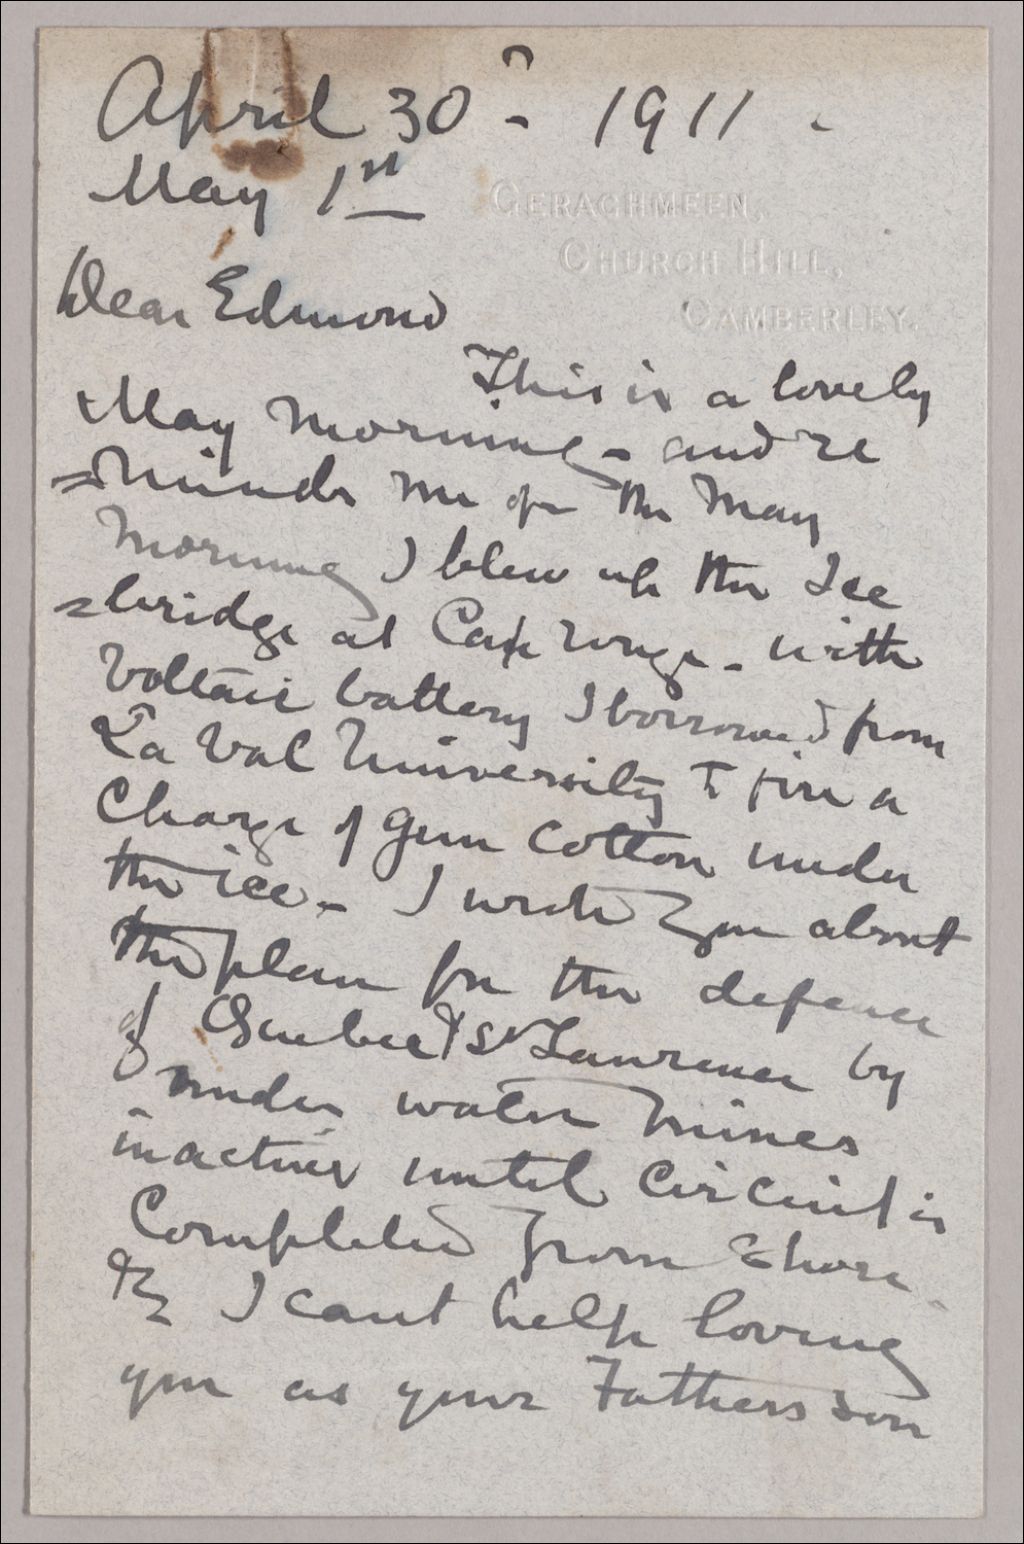 April 30 - 1911 -
May 1st
GERAGHMEEN,
CHURCH HILL,
CAMBERLEY.
Dear Edmond
This is a lovely
May morning - and re
=minds me of the May
morning I blew up the Ice
=bridge at Cap rouge - with
Voltaic battery I borrowed from
La Val University to fire a
Charge of gun cotton under
the ice - I wrote you about
the plan for the defence
of Quebec & St Lawrence by
under water mines
inactive until circuit is
Completed from shore -
& I cant help loving
you as your Fathers son